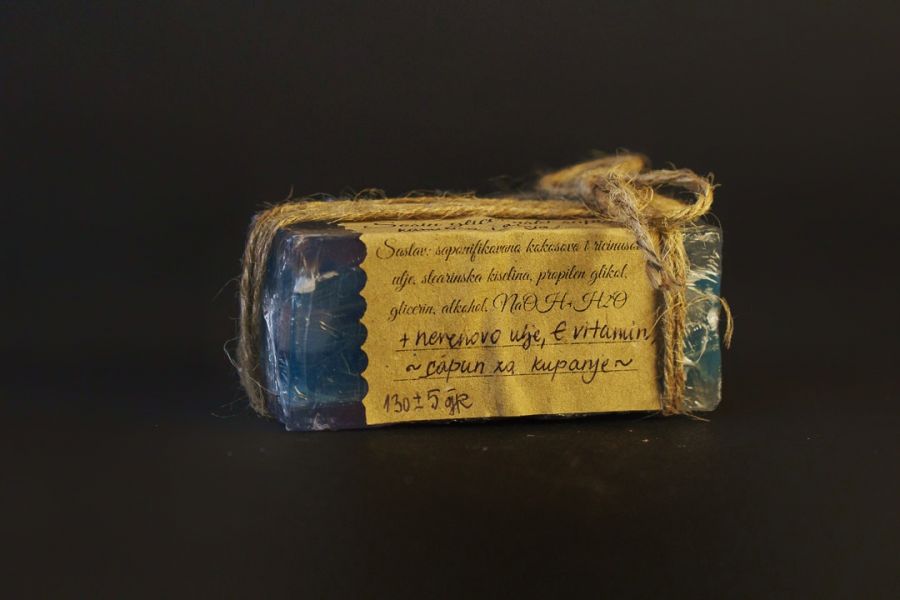 Sastav: saponifikovano kokosovo i ricinusovo
ulje, stearinska kiselina, propilen glikol,
glicerin, alkohol, NaOH+H2O
+ nevenovo ulje, E vitamin
~ сапун за kupanje ~
130 ± 5 gr